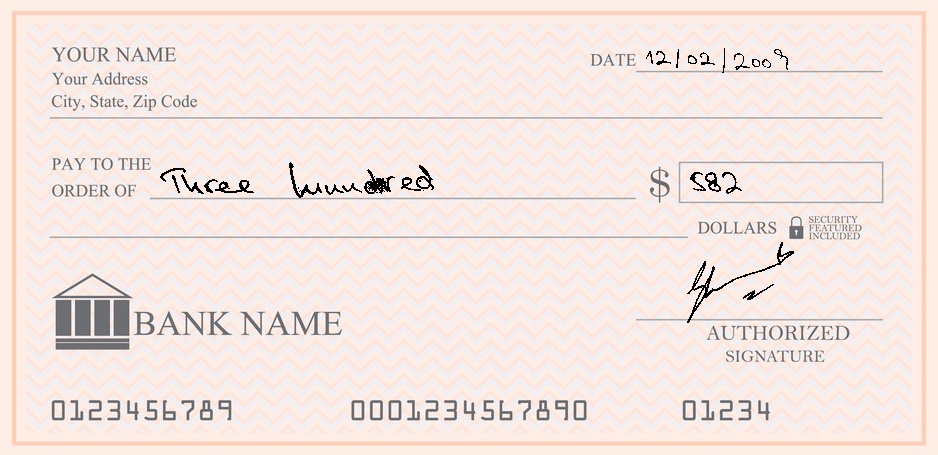 YOUR NAME
Your Address
City, State, Zip Code
DATE 12/02/2009
PAY TO THE
ORDER OF Three hundred $ 582
DOLLARS SECURITY
FEATURED
INCLUDED
BANK NAME
AUTHORIZED
SIGNATURE
0123456789 0001234567890 01234